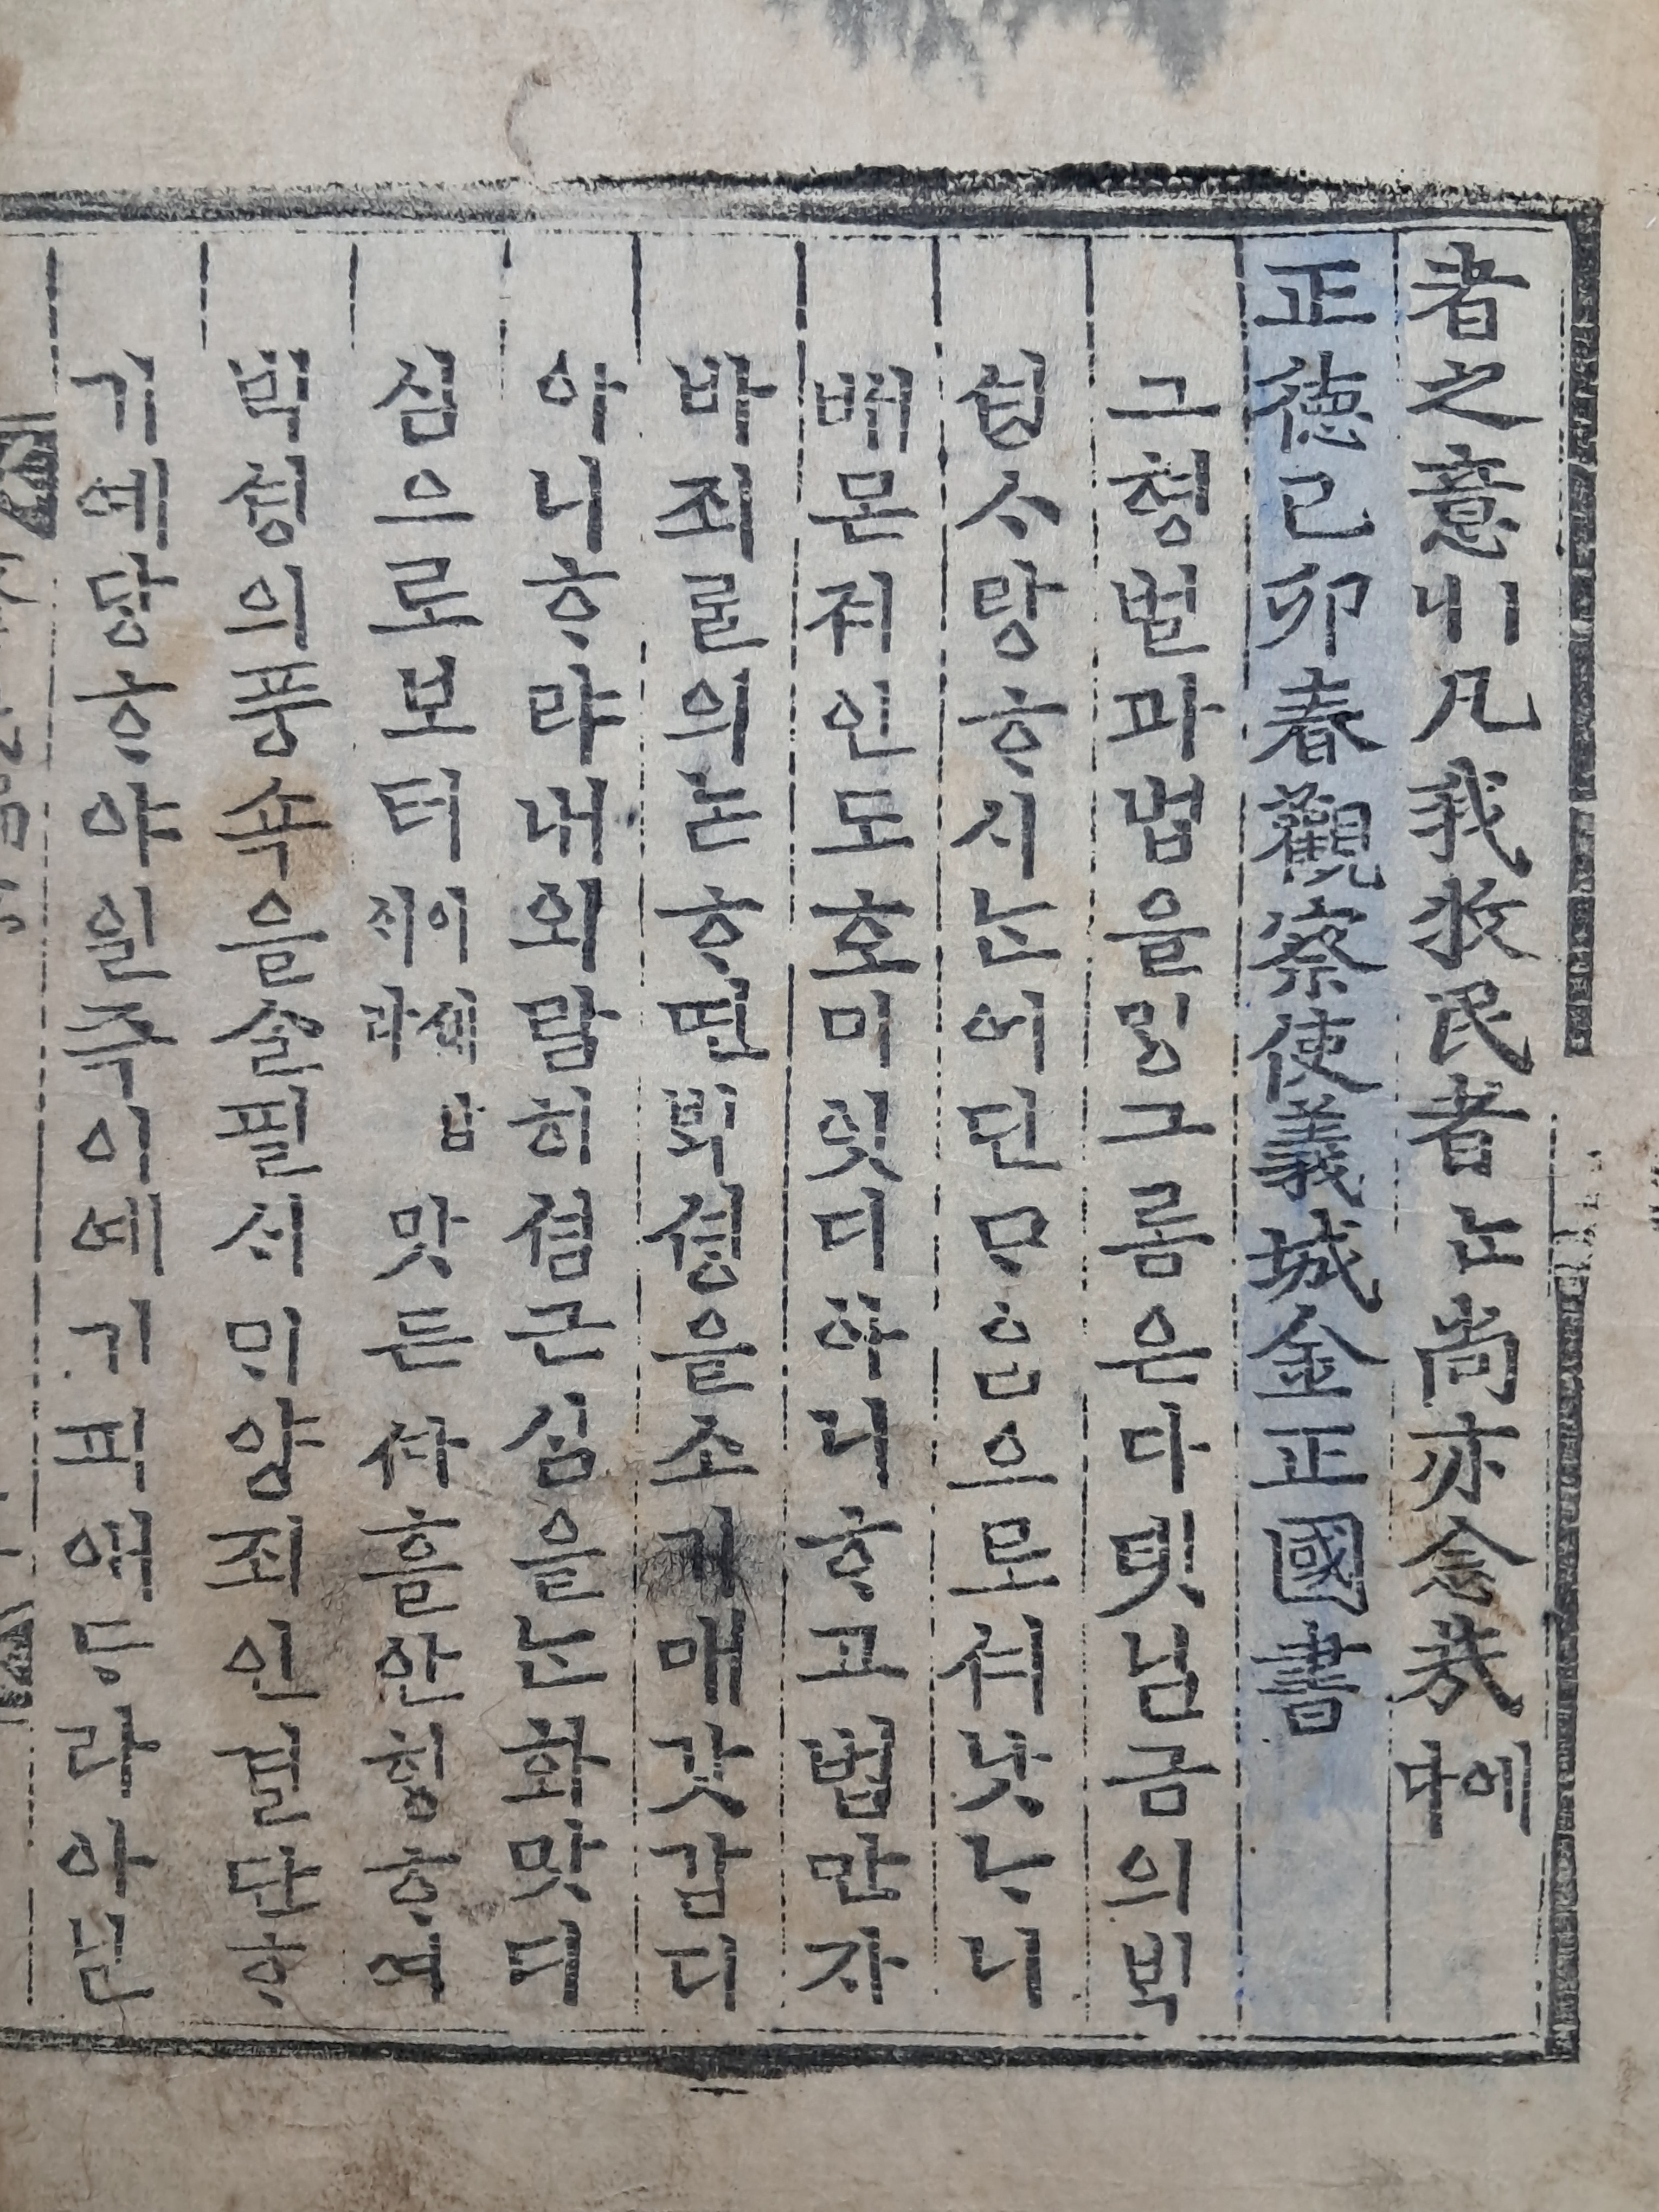 者之意니凡我牧民者는尚亦念哉에다
正德己卯春觀察使義城金正國書
그형벌과법을ᄆᆡᆼ그롬은다텻님금의ᄇᆡᆨ
셩ᄉᆞ랑ᄒᆞ시논어딘ᄆᆞᅀᆞᆷ으로셔낫ᄂᆞ니
배몬져인도호미잇디아니ᄒᆞ고법만자
바죄ᄅᆞᆯ의논ᄒᆞ면ᄇᆡᆨ셩을소기매갓갑디
아니ᄒᆞ랴내외람히셩근심을논화맛디
심으로보터이셰답지라맛든사흘안찰ᄒᆞ여
ᄇᆡᆨ셩의풍쇽을ᄉᆞᆯ필ᄉᆡᄆᆡ양죄인결단ᄒᆞ
기예당ᄒᆞ야일즉이예기픠역ᄃᆞᆼ라아닌